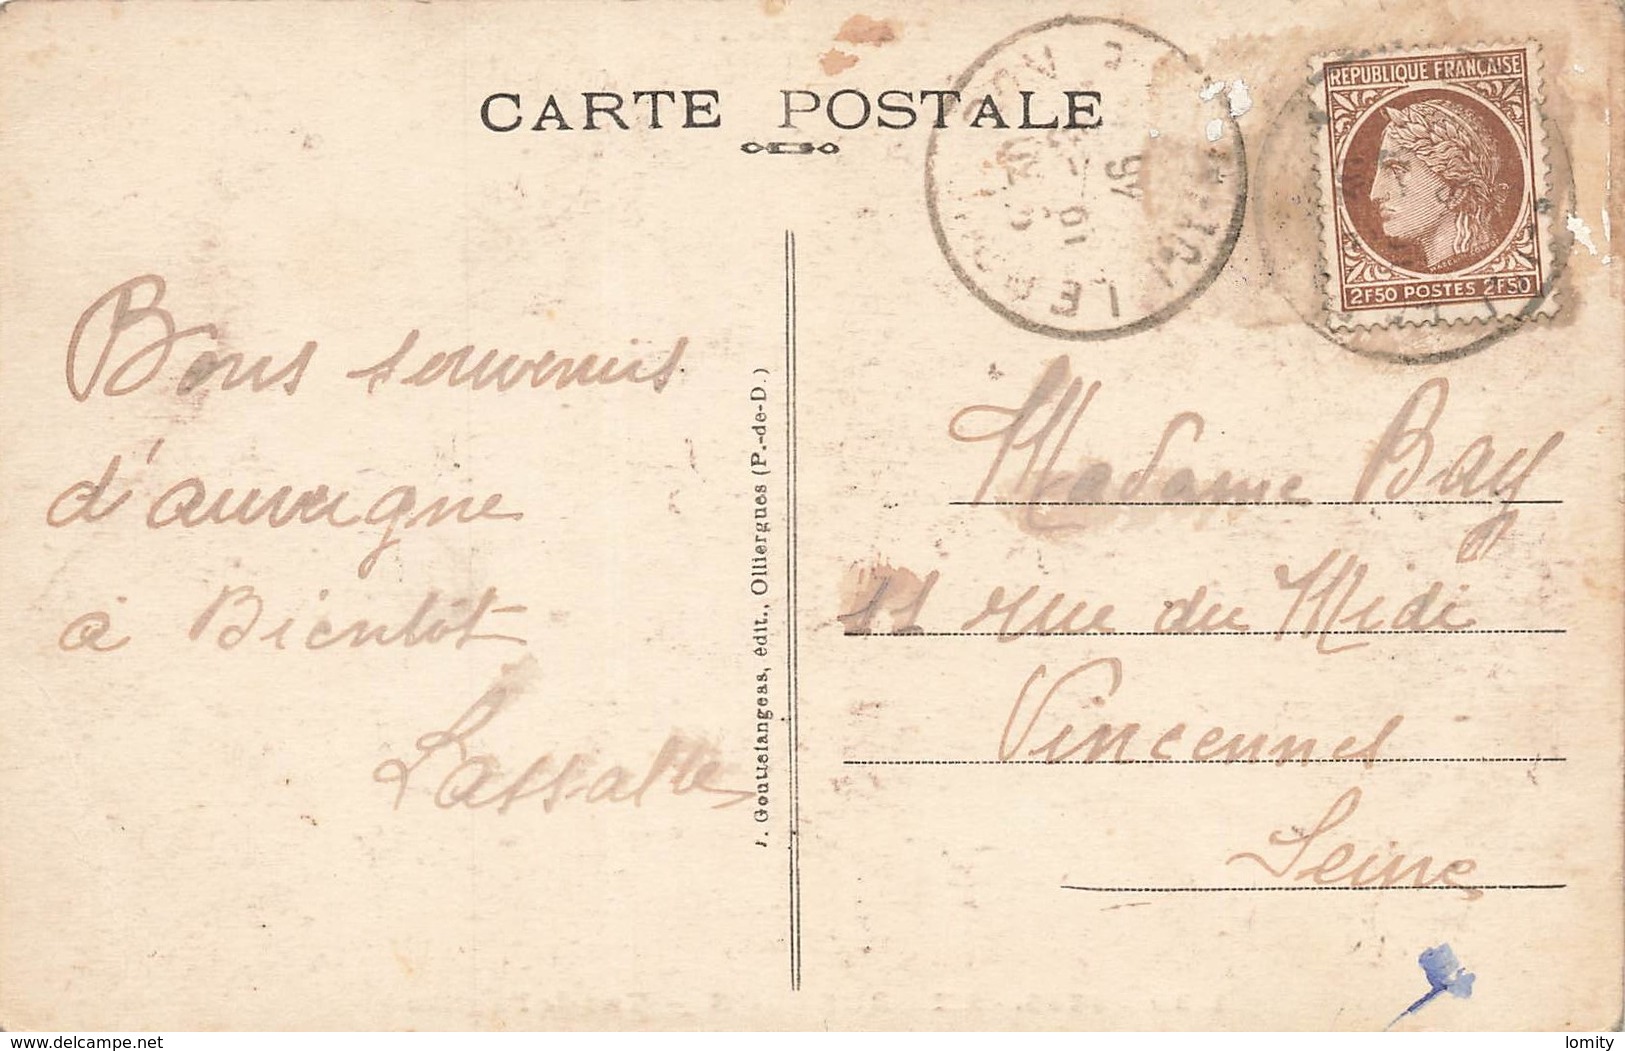 CARTE POSTALE
REPUBLIQUE FRANÇAISE
2F50 POSTES 2F50
Bons souvenirs
d'auvergne
à Bientôt
Lassalle
Gouttefangeas, édit., Olliergues (P.-de-D.)
Madame Bay
11 rue du Midi
Vincennes
Seine
www.delcampe.net
lomity